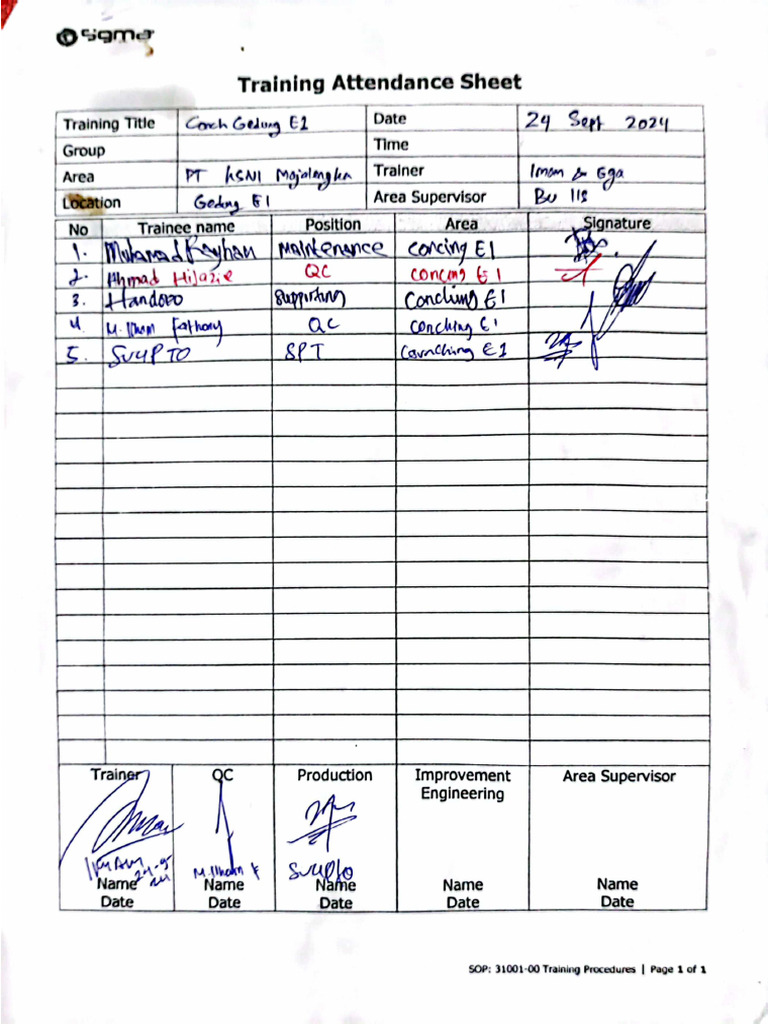 sigma
Training Attendance Sheet
Training Title Conch Gedung E1 Date 24 Sept 2024
Group Time
Area PT KSNI Majalengka Trainer Imam & Ega
Location Gedung E1 Area Supervisor Bu IIS
No Trainee name Position Area Signature
1. Muhamad Rayhan Maintenance Concing E1
2. Ahmad Hilazie QC Concing E1
3. Handoro Supporting Conching E1
4. M. Ilham Fathony QC Conching E1
5. SUYPTO SPT Counching E1
Trainer QC Production Improvement Engineering Area Supervisor
IMAM M. Ilham F Suypto
Name Name Name Name Name
Date Date Date Date Date
SOP: 31001-00 Training Procedures | Page 1 of 1